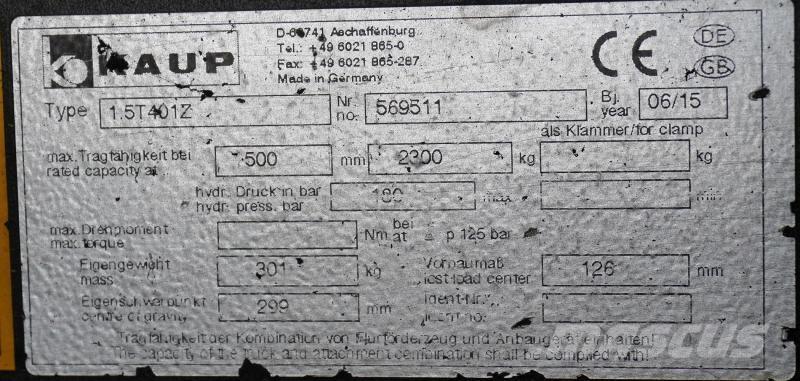 KAUP
D-63741 Aschaffenburg
Tel.: +49 6021 865-0
Fax: +49 6021 865-287
Made in Germany
CE
DE
GB
Type 1.5T401Z Nr. no. 569511 Bj. year 06/15
als Klammer/for clamp
max. Tragfähigkeit bei
rated capacity at 500 mm kg kg
hydr. Druck in bar
hydr. press. bar max. min.
max. Drehmoment
max. torque Nm bei at p 125 bar
Eigengewicht
mass 301 kg Vorbaumaß
lost load center 126 mm
Eigenschwerpunkt
centre of gravity 299 mm Ident-Nr.
Tragfähigkeit der Kombination von Flurförderzeug und Anbaugerät einhalten!
The capacity of the truck and attachment combination shall be complied with!